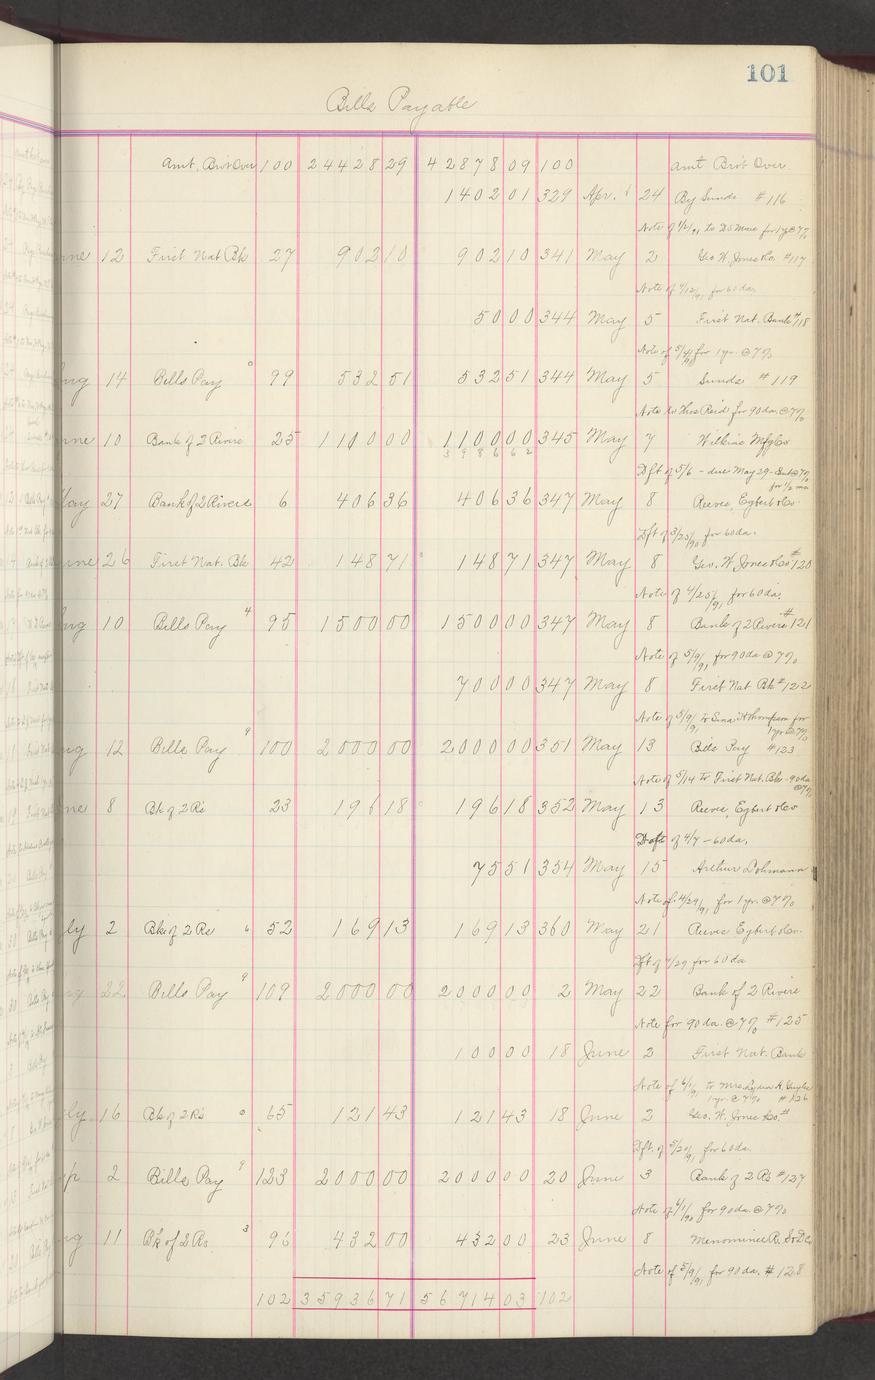 101
Bills Payable
Amt. Brot Over 100 24428 29 42878 09 100 Amt Brot Over
1402 01 329 Apr. 24 By Sunds #116
Note of 4/2/91 to for 1 yr @ 7%
12 First Nat Bk 27 902 10 902 10 341 May 2 Geo W. Jones & Co. #117
Note of 4/12/91 for 60 da.
50 00 344 May 5 First Nat. Bank #118
Note of for 1 yr. @ 7%
14 Bills Pay 99 532 51 532 51 344 May 5 Sunds #119
Note to Thos Reid for 90 da @ 7%
10 Bank of 2 Rivers 25 1100 00 1100 00 345 May 7 Wilkins Mfg Co
Dft of 5/6 - due May 29 - @ 7% for 1/2 mo
27 Bank of 2 Rivers 6 406 36 406 36 347 May 8 Reeves, Egbert & Co.
Dft of 3/25/90 for 60 da.
26 First Nat. Bk 42 148 71 148 71 347 May 8 Geo. W. Jones & Co #120
Note of 4/25/91 for 60 da.
10 Bills Pay 95 1500 00 1500 00 347 May 8 Bank of 2 Rivers #121
Note of 5/9/91 for 90 da @ 7%
700 00 347 May 8 First Nat Bk #122
Note of 5/9/91 to Thompson for 1 yr @ 7%
12 Bills Pay 100 2000 00 2000 00 351 May 13 Bills Pay #123
Note of 5/14 to First Nat. Bk - 90 da @ 7%
8 Bk of 2 Rs 23 196 18 196 18 352 May 13 Reeves, Egbert & Co
Draft of 4/7 - 60 da.
75 51 354 May 15 Arthur Lohmann
Note of 4/29/91 for 1 yr. @ 7%
2 Bk of 2 Rs 52 169 13 169 13 360 May 21 Reeves Egbert & Co.
Dft of 4/29 for 60 da
22 Bills Pay 109 2000 00 2000 00 2 May 22 Bank of 2 Rivers
Note for 90 da. @ 7% #125
100 00 18 June 2 First Nat. Bank
Note of 6/1/91 to Mrs Lydia H. 1 yr. @ 7% #126
16 Bk of 2 Rs 65 121 43 121 43 18 June 2 Geo. W. Jones & Co. #
Dft. of 5/20/91 for 60 da.
2 Bills Pay 123 2000 00 2000 00 20 June 3 Bank of 2 Rs #127
Note of 6/1/90 for 90 da. @ 7%
11 Bk of 2 Rs 96 432 00 432 00 23 June 8 Menominee R.
Note of 5/9/91 for 90 da. #128
102 35936 71 56714 03 102